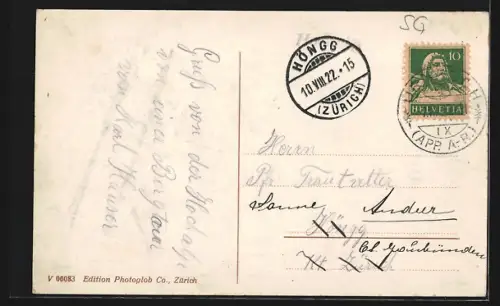 SG
HÖNGG
10.VIII.22.-15
(ZÜRICH)
10
HELVETIA
IX
(APP. A.-R.)
Gruß von der
von einer Bergtour
von Karl
Herrn
Pfr Trautvetter
Sonne, Andeer
Höngg
Ct. Graubünden
Kt. Zürich
V 06083 Edition Photoglob Co., Zürich